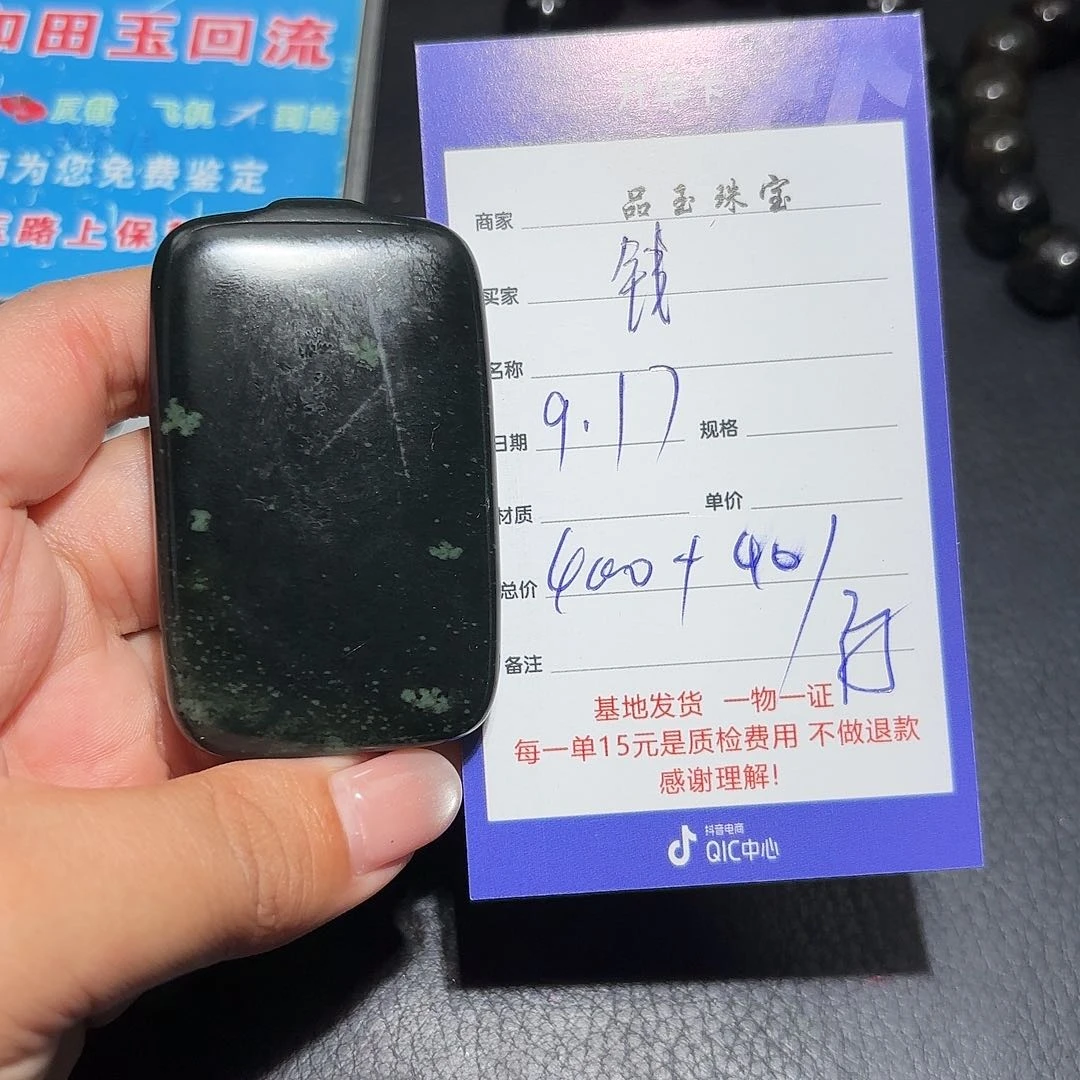 和田玉回流
反截 飞机 到站
为您免费鉴定
路上保
商家 品玉珠宝
买家 钱
名称
日期 9.17 规格
材质 单价
总价 400+40/
备注
基地发货 一物一证
每一单15元是质检费用 不做退款
感谢理解!
抖音电商
QIC中心